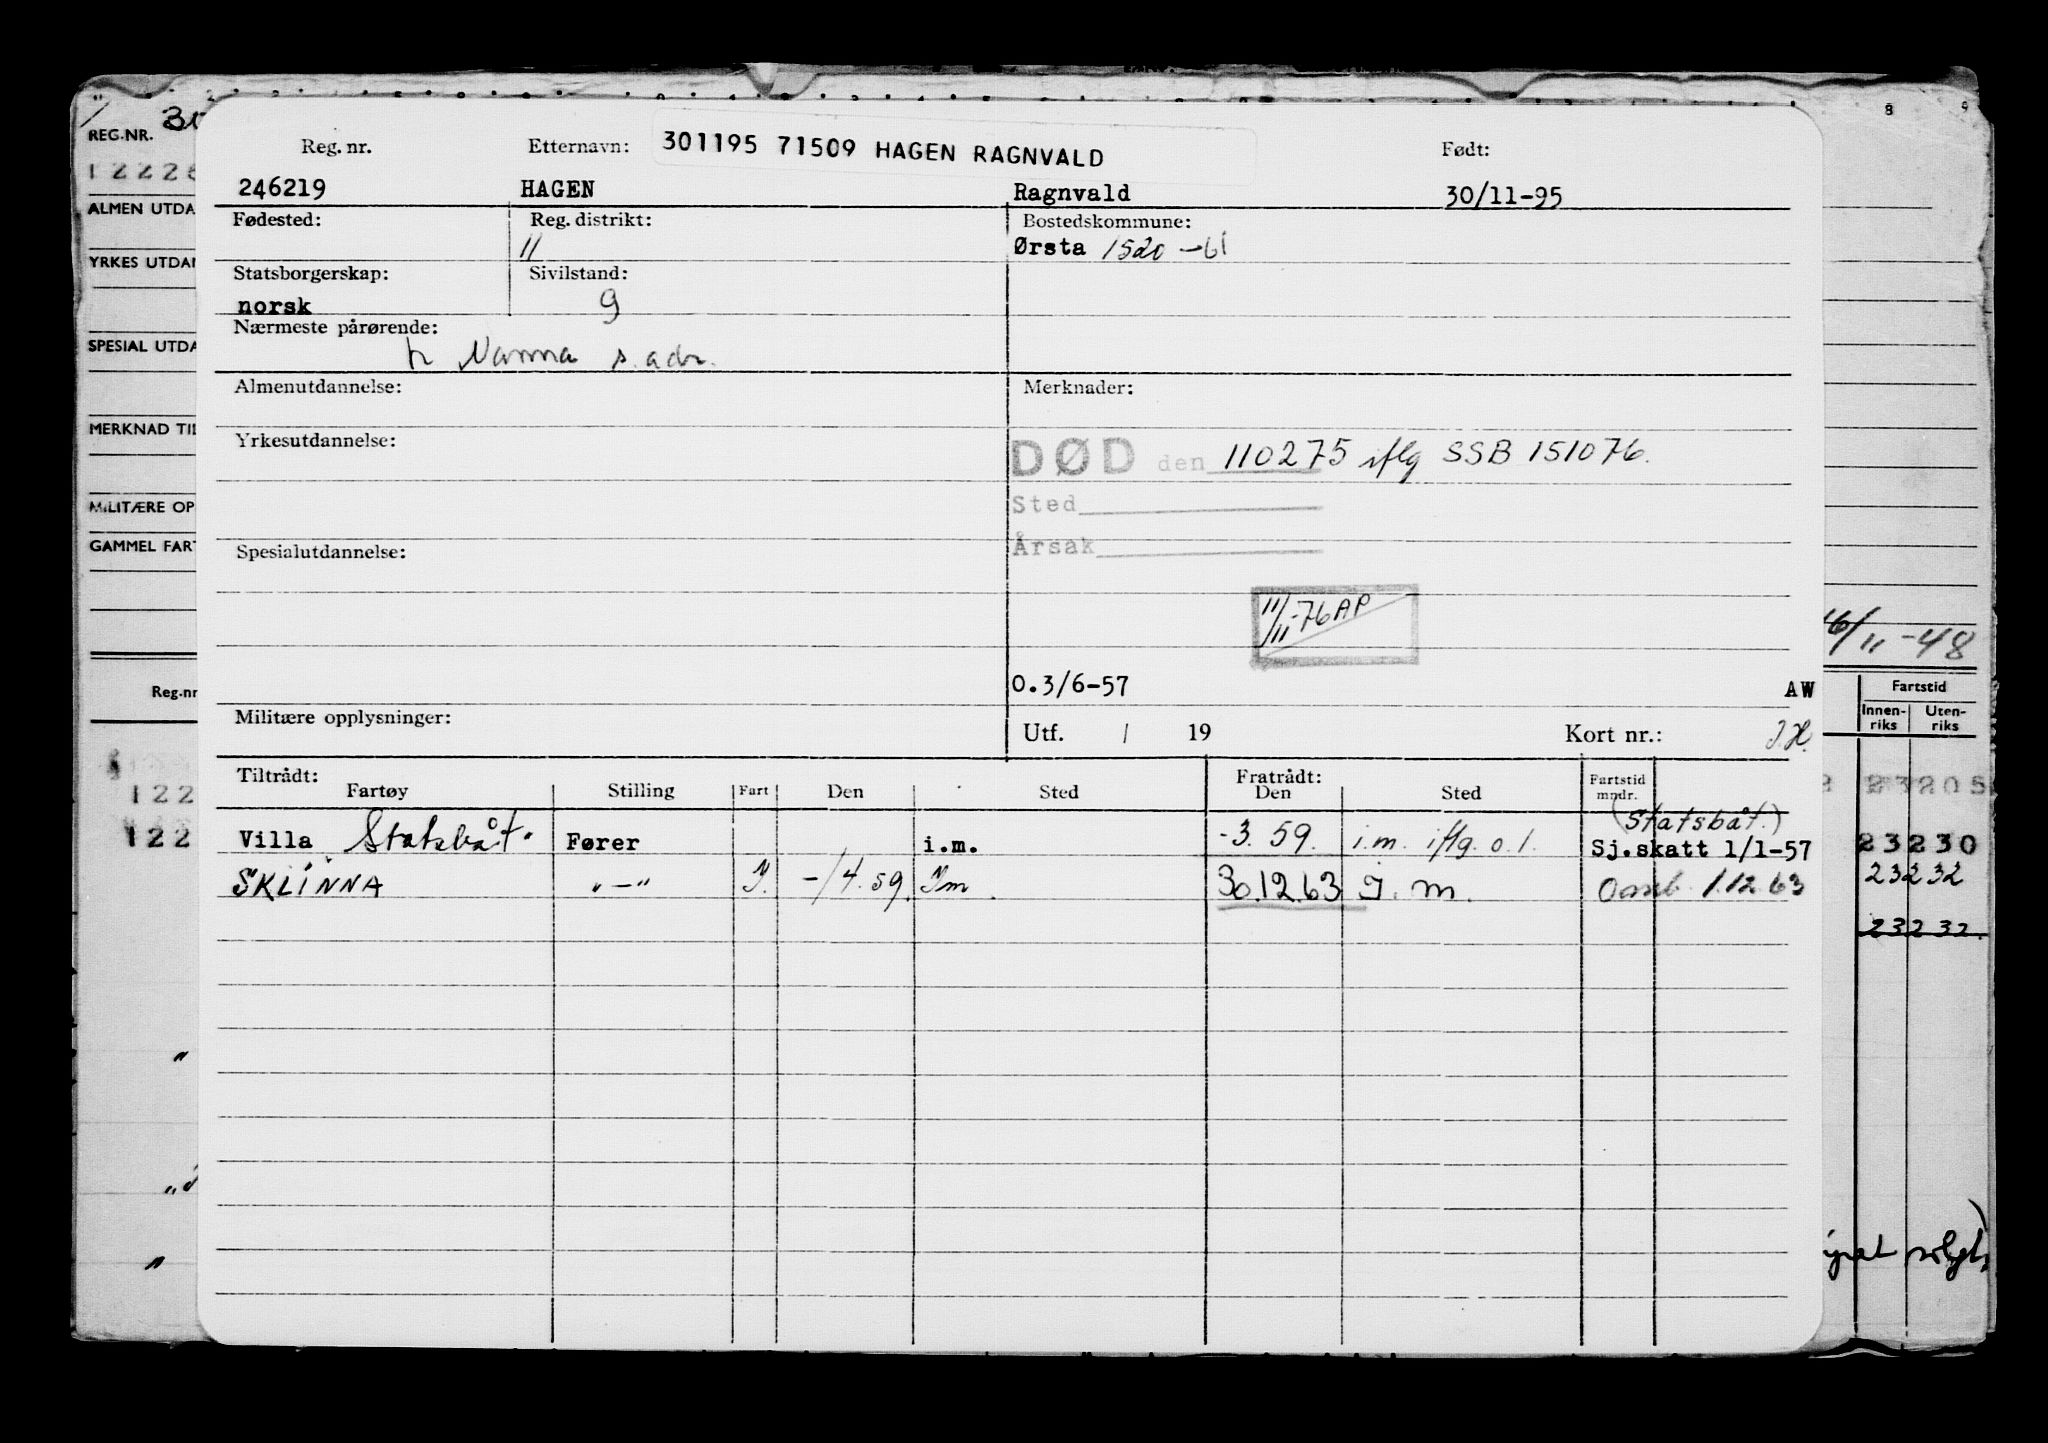 REG.NR.
ALMEN UTDA
YRKES UTDAN
SPESIAL UTDA
MERKNAD TIL
MILITÆRE OP
GAMMEL FART
Reg.nr
122
122
Reg. nr. Etternavn: 301195 71509 HAGEN RAGNVALD Født:
246219 HAGEN Ragnvald 30/11-95
Fødested: Reg. distrikt: Bostedskommune:
11 Ørsta 1520 -61
Statsborgerskap: Sivilstand:
norsk g
Nærmeste pårørende:
h Nanna s. adr.
Almenutdannelse: Merknader:
Yrkesutdannelse:
DØD den 110275 iflg SSB 151076.
Sted
Årsak
Spesialutdannelse:
11/11-76 AP
0.3/6-57 AW
Militære opplysninger:
Utf. / 19 Kort nr.: J.H.
Tiltrådt: Fratrådt: Fartstid
Fartøy Stilling Fart Den Sted Den Sted mndr.
(Statsbåt.)
Villa Statsbåt. Fører i.m. -3.59. i.m. iflg. o.l. Sj.skatt 1/1-57
SKLINNA "-" I. -/4.59. Im. 30.12.63 I.m. 1.12.63
8 9
16/11-48
Fartstid
Innen-riks Uten-riks
23205
23230
23232
23232.